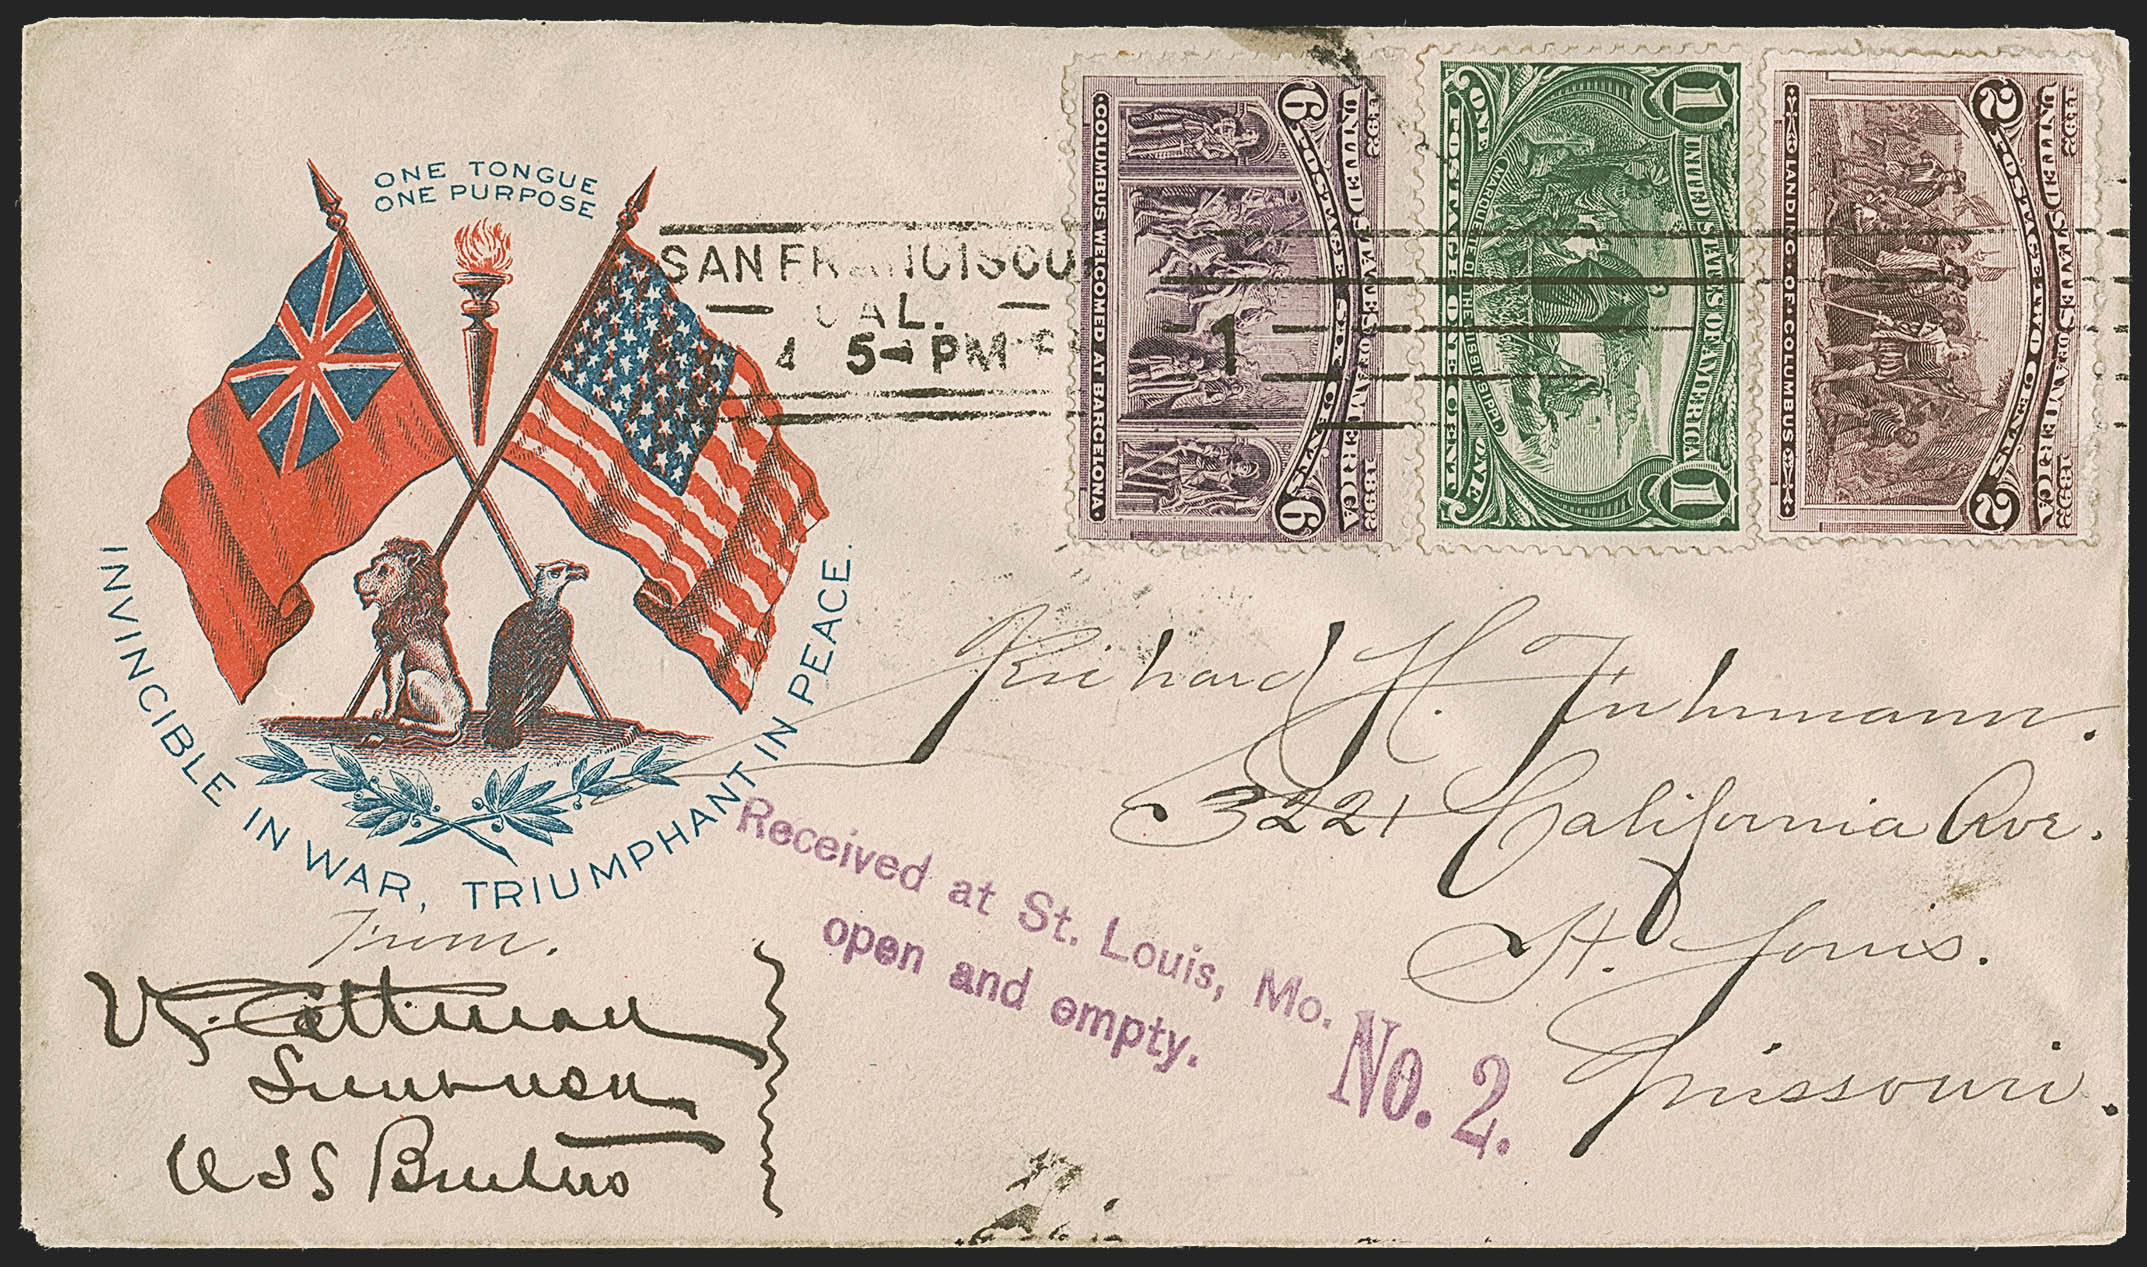 ONE TONGUE
ONE PURPOSE
INVINCIBLE IN WAR, TRIUMPHANT IN PEACE.
SAN FRANCISCO
CAL.
4 5- PM
1
1492 UNITED STATES OF AMERICA 1892
6 POSTAGE SIX CENTS 6
COLUMBUS WELCOMED AT BARCELONA.
1 UNITED STATES OF AMERICA 1
MARQUETTE ON THE MISSISSIPPI
ONE POSTAGE ONE CENT ONE
1492 UNITED STATES OF AMERICA 1892
2 POSTAGE TWO CENTS 2
LANDING OF COLUMBUS
Richard H. Fuhrmann.
3221 California Ave.
St. Louis.
Missouri.
Received at St. Louis, Mo.
open and empty.
No. 2.
From.
USS